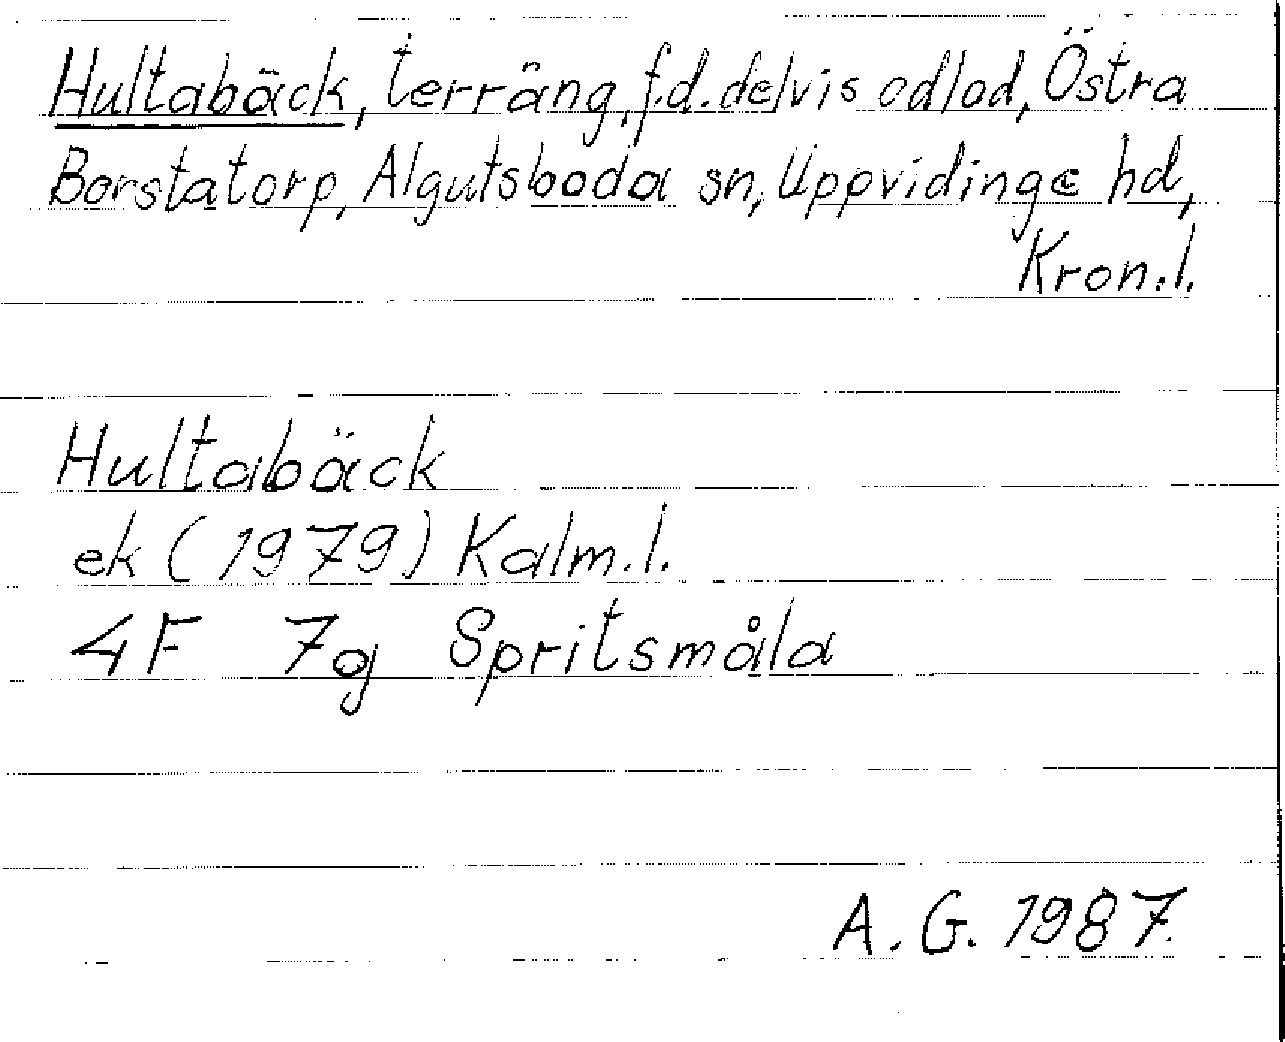 Hultabäck, terräng, f.d. delvis odlad, Östra
Borstatorp, Algutsboda sn, Uppvidinge hd,
Kron.l.
Hultabäck
ek (1979) Kalm.l.
4F 7g Spritsmåla
A.G. 1987.